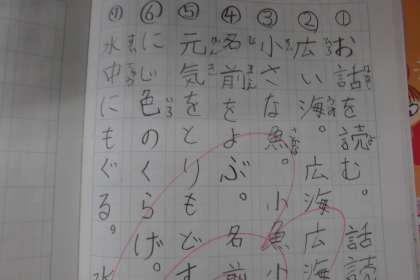 ①お話を読む。 話読
②広い海。広海広海
③小さな魚。小魚小
④名前をよぶ。名前
⑤元気をとりもどす
⑥にじ色のくらげ。
⑦水中にもぐる。水